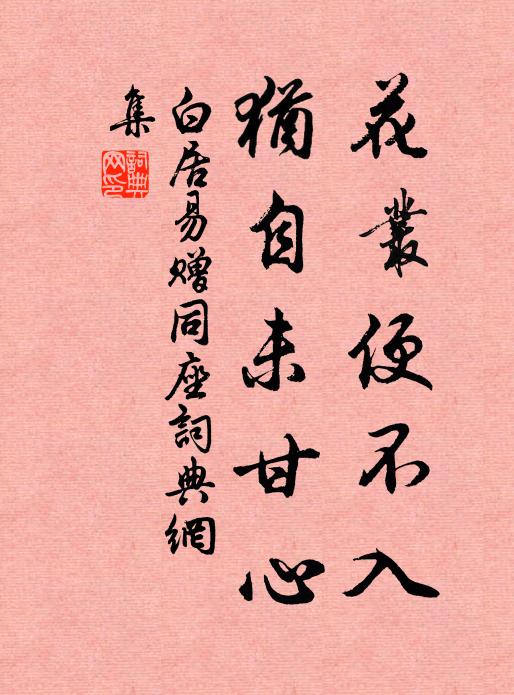 花叢便不入
猶自未甘心
白居易贈同座詞典網
集
詞典网印